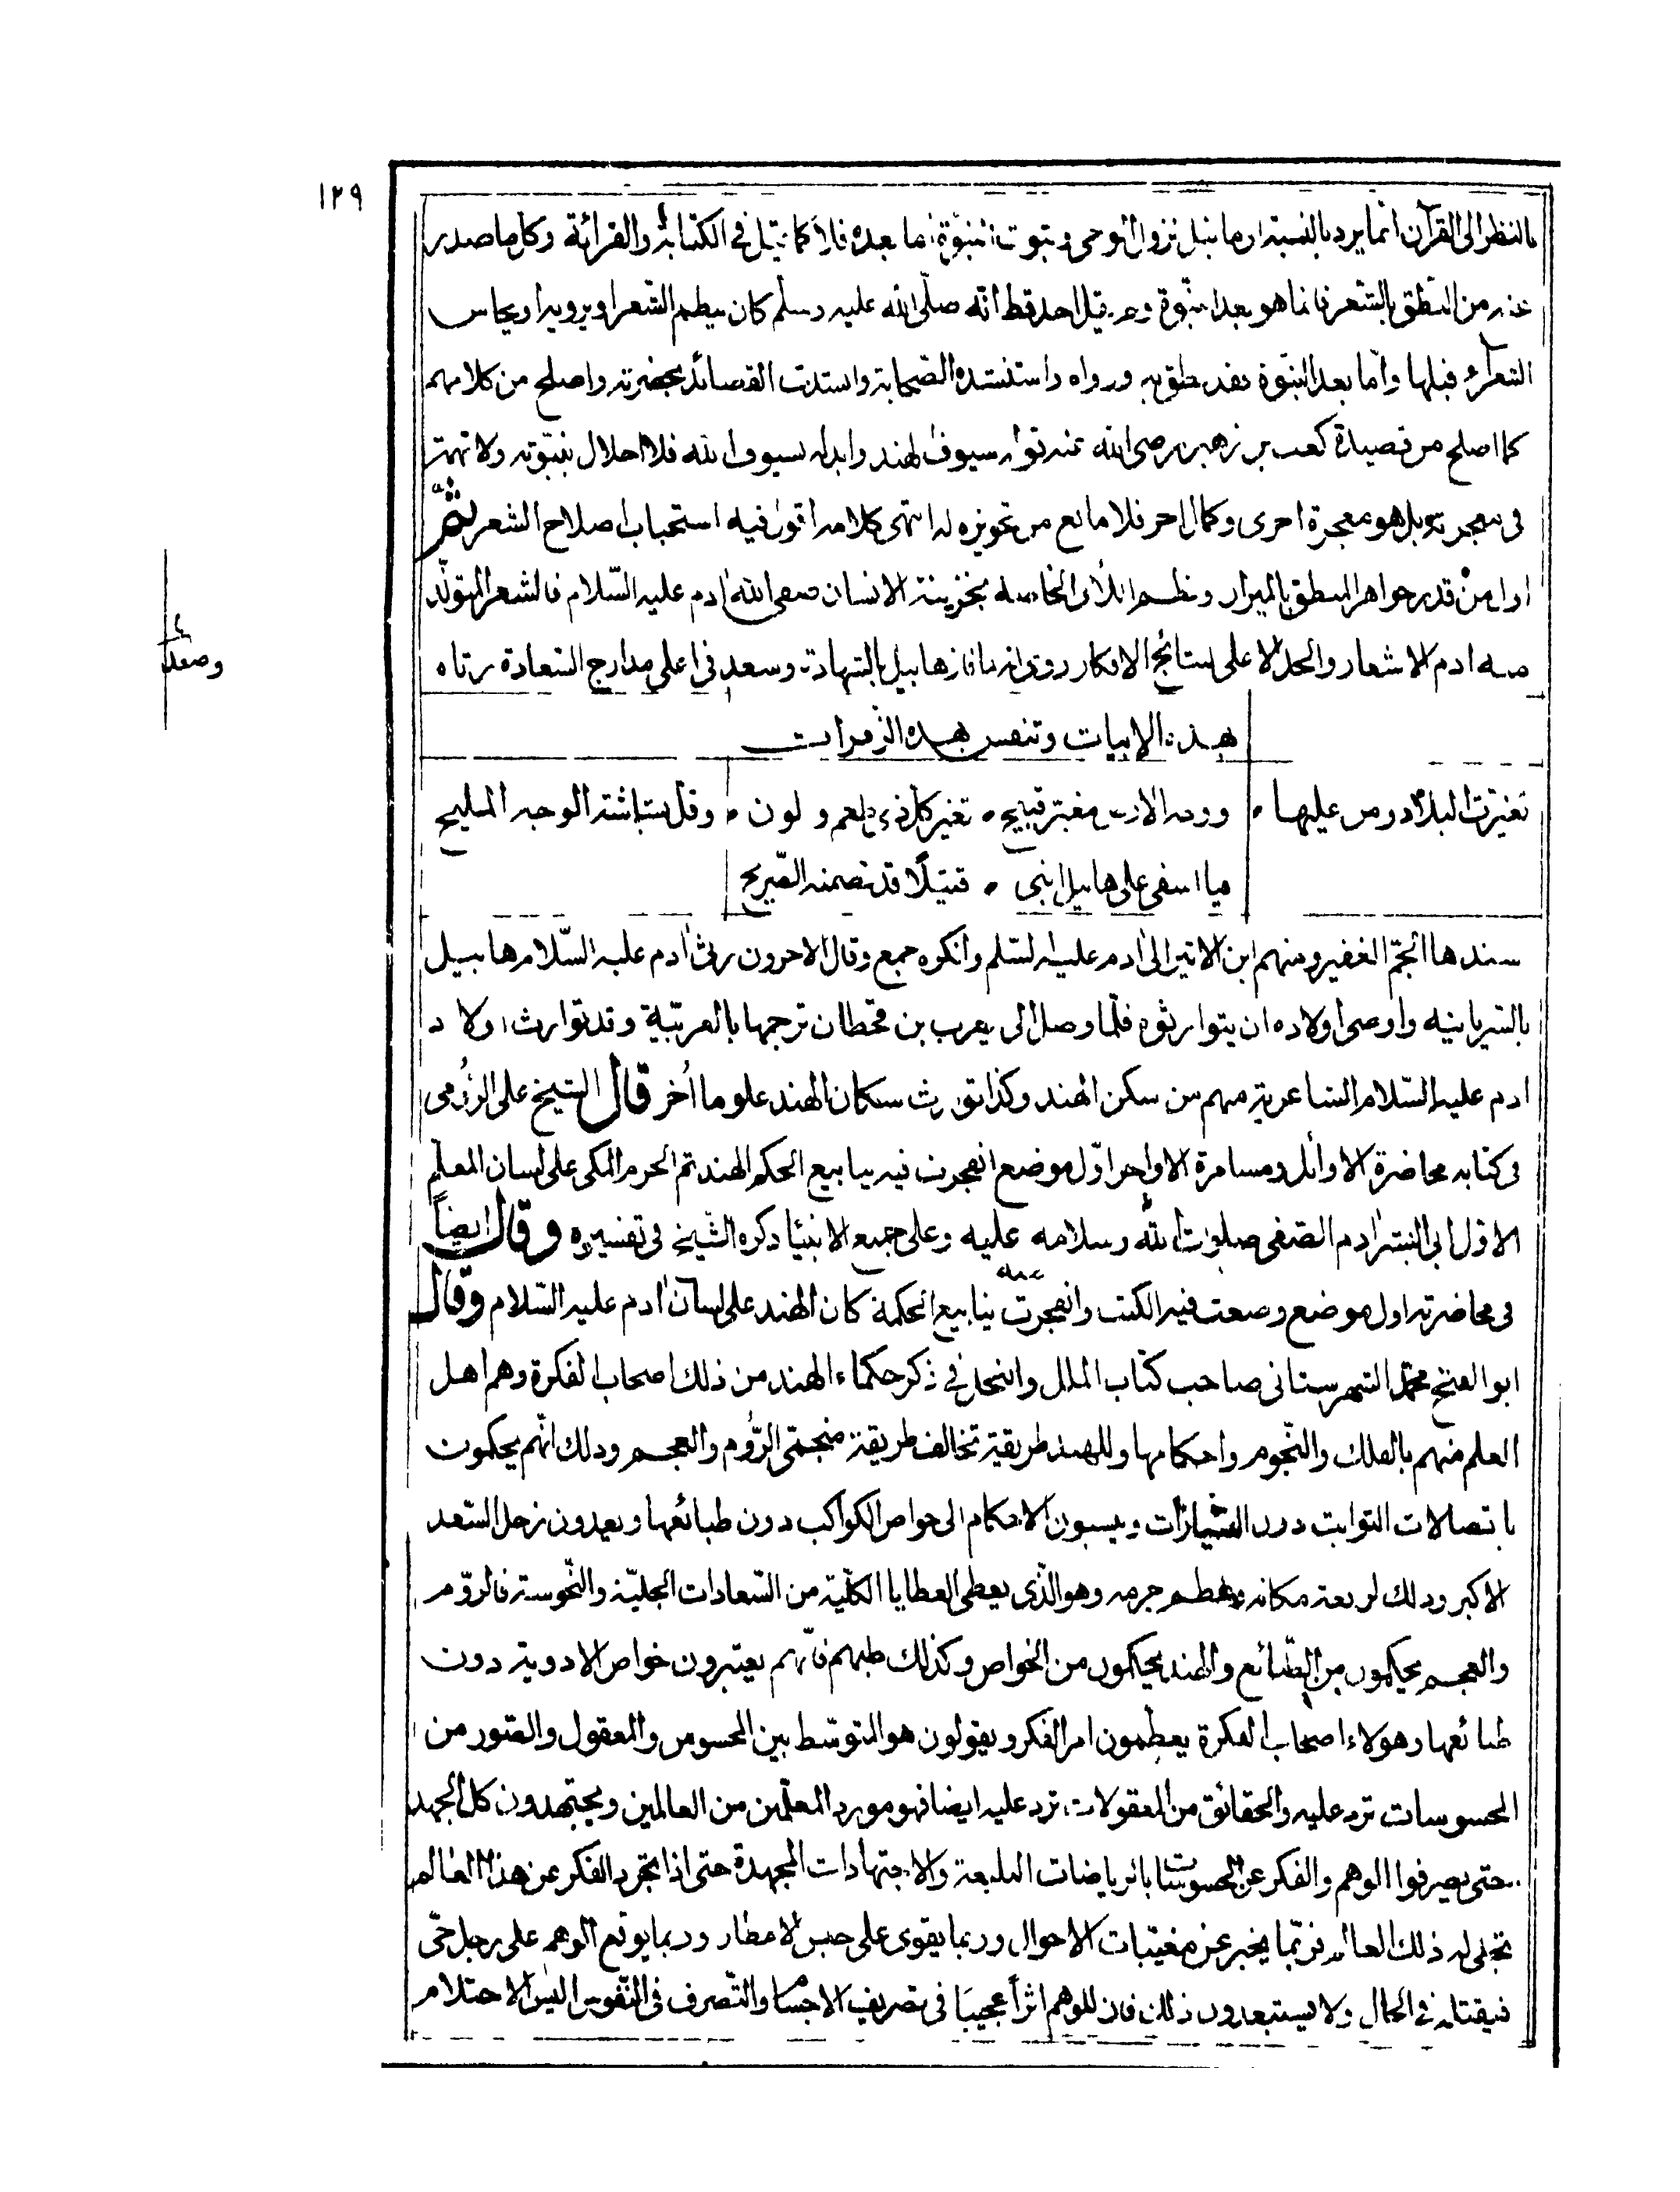 ١٢٩
بالنظر الى القرآن انما يرد بالنسبة الى ما قبل نزول الوحى وثبوت النبوة اما بعده فلا كما قيل فى الكتابة والقرائة وكل ما صدر
عنه من النطق بالشعر فانما هو بعد النبوة ولم يقل احد قط انه صلى الله عليه وسلم كان ينظم الشعر او يرويه او يجالس
الشعراء قبلها واما بعد النبوة فقد نطق به ورواه واستنشده الصحابة وانشدت القصائد بحضرته واصلح من كلامهم
كما اصلح من قصيدة كعب بن زهير رضى الله عنه قوله سيوف الهند وابدله بسيوف الله فلا اخلال بنبوته ولا تهمة
فى معجزته بل هو معجزة اخرى وكمال اخر فلا مانع من تجويزه له انتهى كلامه اقول فيه استحباب اصلاح الشعر ثم
اول من قدر جواهر المنطق بالميزان ونظم اللآلى الخاصة بخزينة الانسان صفى الله ادم عليه السلام فالشعر المتولد
منه ادم الاشعار والجد الاعلى لنتائج الافكار روى انه لما فاز هابيل بالشهادة وسعد فى اعلى مدارج السعادة رثاه
وصعد
بهذه الابيات وتنفس بهذه الزفرات
تغيرت البلاد ومن عليها • ووجه الارض مغبر قبيح • تغير كل ذى طعم ولون • وقل بشاشة الوجه المليح
فيا اسفى على هابيل ابنى • قتيلا قد تضمنه الضريح
سندها الجم الغفير ومنهم ابن الاثير الى ادم عليه السلم وانكره جمع وقال الاخرون رثى ادم عليه السلام هابيل
بالسريانيه واوصى اولاده ان يتوارثوه فلما وصل الى يعرب بن قحطان ترجمها بالعربية وقد توارث اولاد
ادم عليه السلام الشاعرية منهم من سكن الهند وكذا تورث سكان الهند علوما أخر قال الشيخ على الرومى
فى كتابه محاضرة الاوائل ومسامرة الاواخر اول موضع انفجرت فيه ينابيع الحكم الهند ثم الحرم المكى على لسان المعلم
الاول ابى البشر ادم الصفى صلوات الله وسلامه عليه وعلى جميع الانبيا ذكره الشيخ فى تفسيره وقال ايضاً
فى محاضرته اول موضع وضعت فيه الكتب وانفجرت عنه ينابيع الحكمة كان الهند على لسان ادم عليه السلام وقال
ابو الفتح محمد الشهرستانى صاحب كتاب الملل والنحل فى ذكر حكماء الهند من ذلك اصحاب الفكرة وهم اهل
العلم منهم بالفلك والنجوم واحكامها وللهند طريقة تخالف طريقة منجمى الروم والعجم وذلك انهم يحكمون
باتصالات الثوابت دون السيارات وينسبون الاحكام الى خواص الكواكب دون طبائعها ويعدون زحل السعد
الاكبر وذلك لرفعة مكانه وعظم جرمه وهو الذى يعطى العطايا الكلية من السعادات الجلية والنحوسة فالروم
والعجم يحكمون من الطبائع والهند يحكمون من الخواص وكذلك طبهم فانهم يعتبرون خواص الادوية دون
طبائعها وهولاء اصحاب الفكرة يعظمون امر الفكر ويقولون هو المتوسط بين المحسوس والمعقول والصور من
المحسوسات ترد عليه والحقائق من المعقولات ترد عليه ايضا فهو مورد العلمين من العالمين ويجتهدون كل الجهد
حتى يصرفوا الوهم والفكر عن المحسوسات بالرياضات البليغة والاجتهادات المجهدة حتى اذا تجرد الفكر عن هذا العالم
تجلى له ذلك العالم فربما يخبر عن مغيبات الاحوال وربما يقوى على حبس الامطار وربما يوقع الوهم على رجل حى
فيقتله فى الحال ولا يستبعدون ذلك فان للوهم اثراً عجيبا فى تصريف الاجسام والتصرف فى النفوس اليس الاحتلام